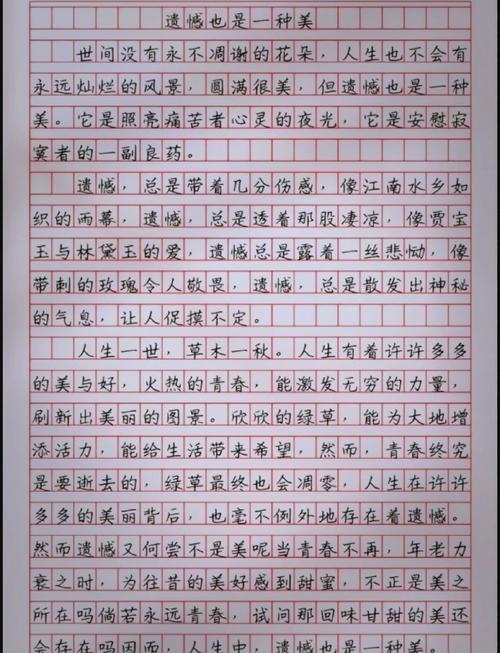 遗憾也是一种美
世间没有永不凋谢的花朵，人生也不会有
永远灿烂的风景，圆满很美，但遗憾也是一种
美。它是照亮痛苦者心灵的夜光，它是安慰寂
寞者的一副良药。
遗憾，总是带着几分伤感，像江南水乡如
织的雨幕，遗憾，总是透着那股凄凉，像贾宝
玉与林黛玉的爱，遗憾总是露着一丝悲恸，像
带刺的玫瑰令人敬畏，遗憾，总是散发出神秘
的气息，让人促摸不定。
人生一世，草木一秋。人生有着许许多多
的美与好，火热的青春，能激发无穷的力量，
刷新出美丽的图景。欣欣的绿草，能为大地增
添活力，能给生活带来希望，然而，青春终究
是要逝去的，绿草最终也会凋零，人生在许许
多多的美丽背后，也毫不例外地存在着遗憾。
然而遗憾又何尝不是美呢当青春不再，年老力
衰之时，为往昔的美好感到甜蜜，不正是美之
所在吗倘若永远青春，试问那回味甘甜的美还
会存在吗因而，人生中，遗憾也是一种美。